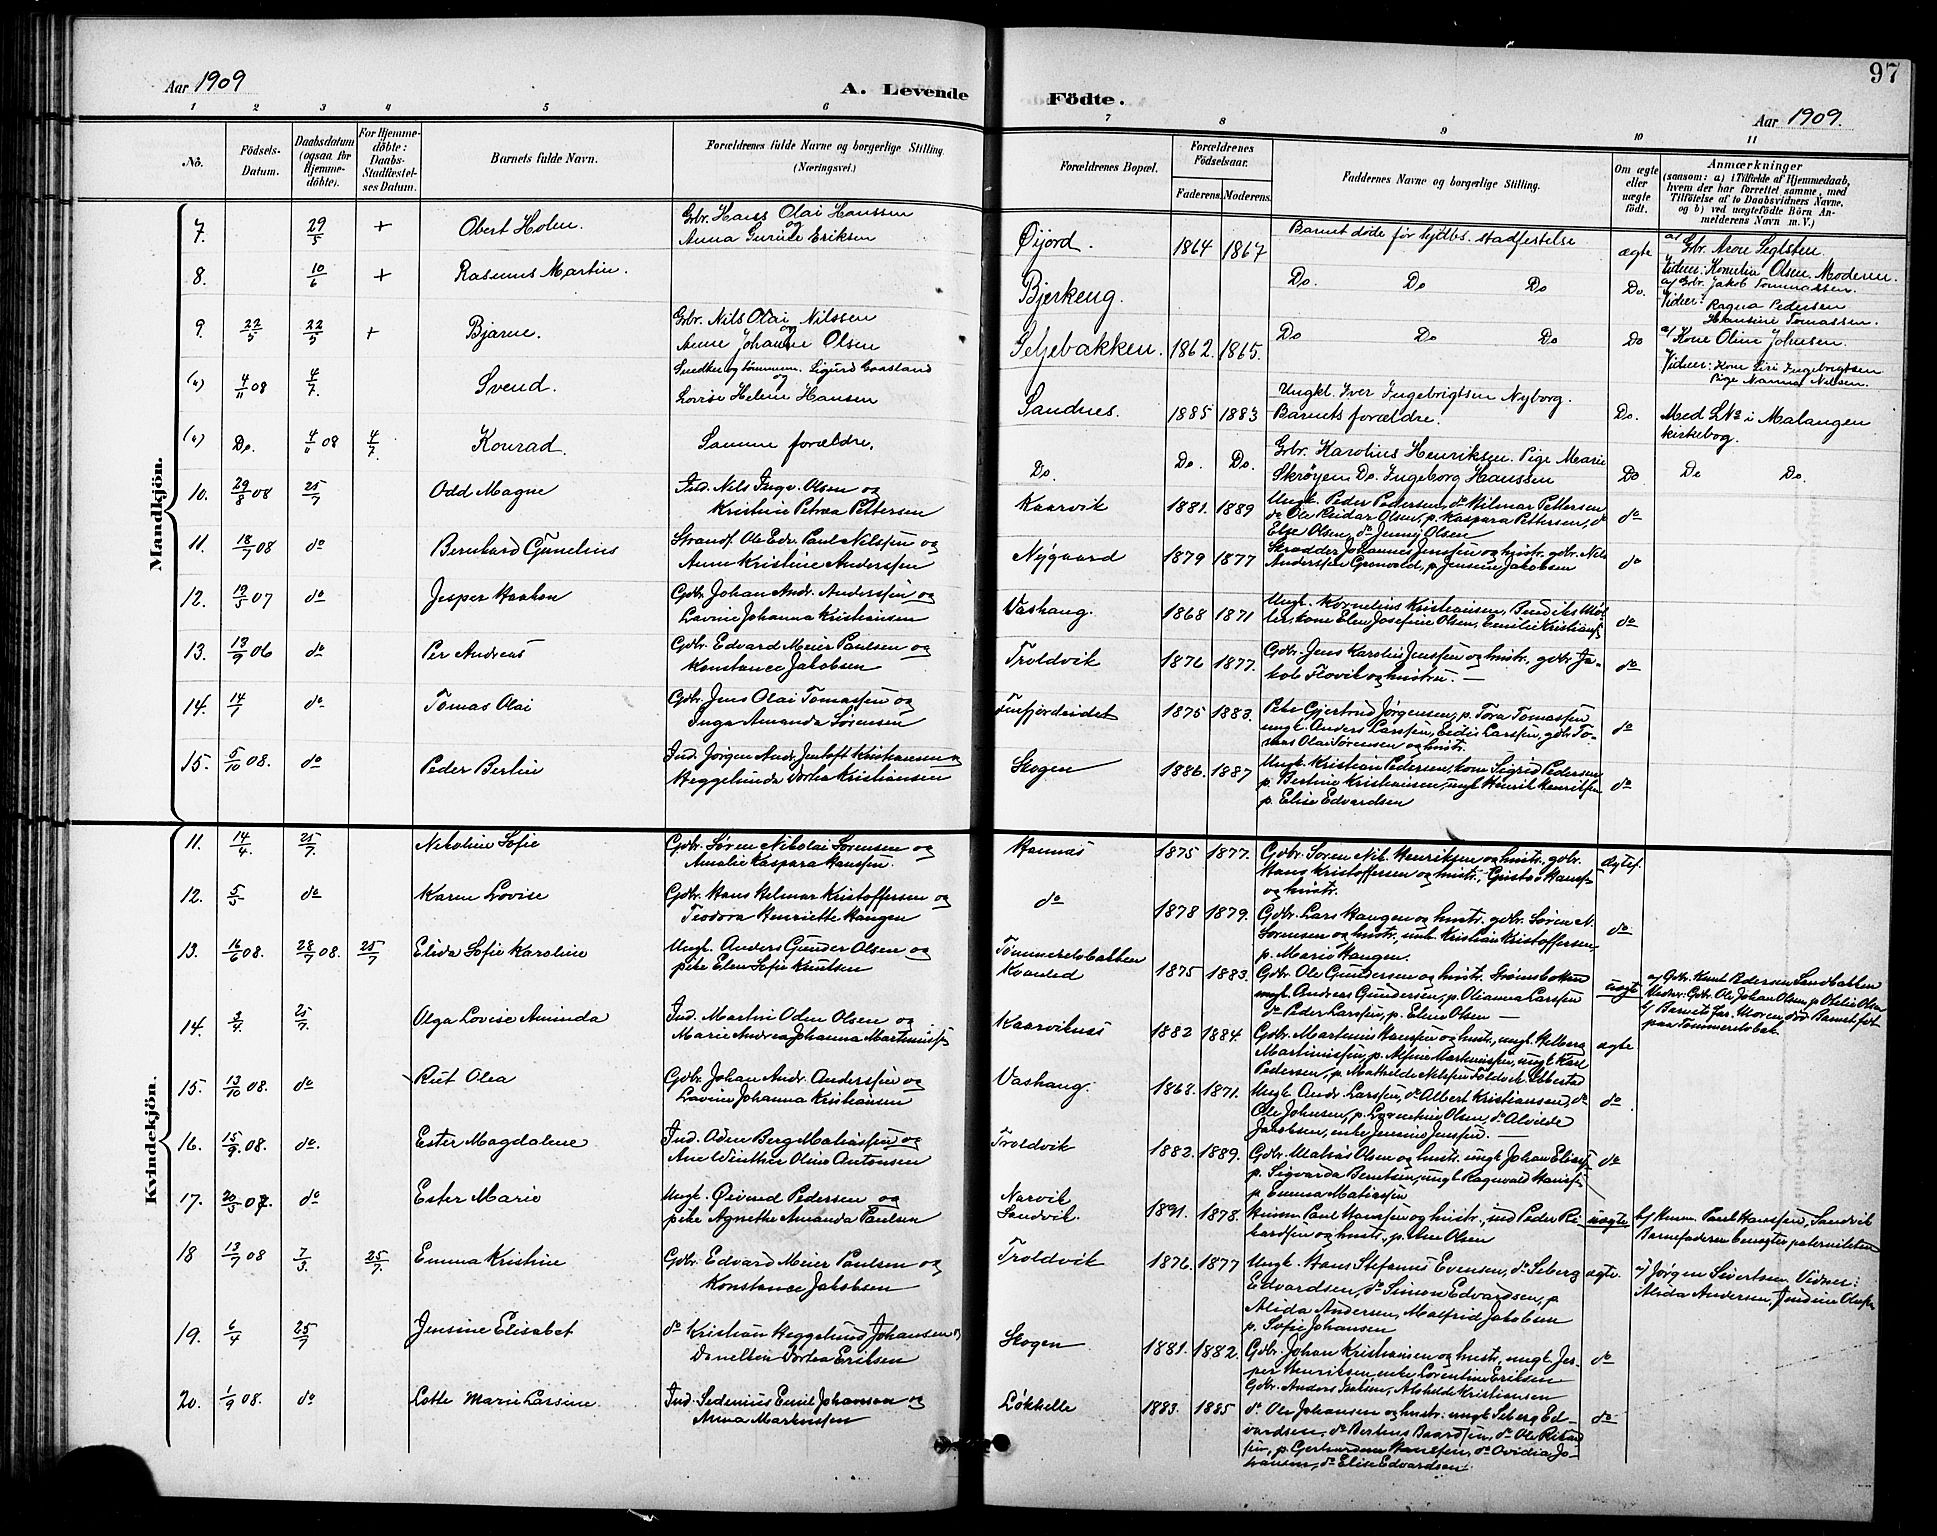 Aar 1909
A. Levende
Födte.
Aar 1909.
97
1 2 3 4 5 6 7 8 9 10 11
No.
Födsels-
Datum.
Daabsdatum
(ogsaa for
Hjemme-
döbte).
For Hjemme-
döbte:
Daabs-
Stadfæstel-
ses Datum.
Barnets fulde Navn.
Forældrenes fulde Navne og borgerlige Stilling.
(Næringsvei.)
Forældrenes Bopæl.
Forældrenes
Födselsaar.
Faderens. Moderens.
Faddernes Navne og borgerlige Stilling.
Om ægte
eller
uægte
födt.
Anmærkninger
(saasom: a) i Tilfælde af Hjemmedaab,
hvem der har forrettet samme, med
Tilföielse af to Daabsvidners Navne.
og b) ved uægtefödte Börn An-
melderens Navn m. V.)
Mandkjön.
7. 29/5 + Obert Holm. Gbr. Hans Olai Hanssen
og
Anna Gurine Eriksen
Øijord. 1864 1867 Barnet døde før Hjdbs. stadfestelse ægte
a/ Gbr. Arone Seglsten
Vidner: Kornelia Olsen. Moderen.
8. 10/6 + Rasmus Martin.
Bjerkeng. Do. Do Do Do.
a/ Gbr. Jakob Tommassen.
Vidner: Ragna Pedersen
Hansine Tomassen.
9. 22/5 22/5 + Bjarne. Gbr. Nils Olai Nilssen
og
Anne Johanne Olsen
Seljebakken. 1862. 1865. Do Do Do Do
a/ Kone Oline Johnsen.
Vidner: Kone Siri Ingebrigtsen
Pige Nanna Nilsen.
4/11 08 4/7. Svend. Snedker og tømmerm. Sigurd Gaasland
og
Lovise Helene Hansen
Sandnes. 1885 1883 Ungkl. Iver Ingebrigtsen Nyborg.
Barnets forældre. Do. Med LNo i Malangen
kirkebog.
Do. 08 4/7. Konrad. Samme forældre.
Do. Do. Do. Gbr. Karolius Henriksen. Pige Marie
Skrøyen Do. Ingeborg Hanssen Do Do Do.
10. 29/8 08 25/7 Odd Magne Ind. Nils Ingv. Olsen og
Kristine Petrea Pettersen
Kaarvik 1881. 1889 Ungk. Peder Pedersen, do Hilmar Pettersen
do Ole Reidar Olsen, p. Kaspara Pettersen, do
Else Olsen, do Jenny Olsen do
11. 18/7 08 do Bernhard Gunelius Strands. Ole Edv. Paul Nilssen og
Anne Kristine Anderssen
Nygaard 1879 1877 Skrædder Johannes Jenssen og hustr. gdbr. Nils
Anderssen Grunvold, p. Jensine Jakobsen do
12. 19/5 07 do Jesper Haakon Gdbr. Johan Andr. Anderssen og
Lavine Johanna Kristiansen
Vashaug. 1868 1871 Ungk. Kornelius Kristiansen, Benedikte Møl-
ler, kone Elen Josefine Olsen, Emilie Kristians. do
13. 13/9 06 do Per Andreas Gdbr. Edvard Meier Paulsen og
Konstance Jakobsen
Troldvik 1876 1877. Gdbr. Jens Karolius Jenssen og hustr. gdbr. Ja-
kob Flovik og hustru. — do
14. 14/7 do Tomas Olai Gdbr. Jens Olai Tomassen og
Inga Amanda Sørensen
Finfjordeidet 1875 1883. Pike Gjertrud Jørgensen, p. Tora Tomassen
ungk. Anders Larssen, Eedis Larssen, gdb. To-
mas Olai Sørensen og hustr. do
15. 5/10 08. do Peder Bertin Ind. Jørgen Andr. Jentoft Kristiansen og
Heggelunda Dortea Kristiansen
Skogen 1886. 1887 Ungk. Kristian Pedersen, kone Sigrid Pedersen
p. Bertine Kristiansen, ungk. Henrik Henriksen
p. Elise Edvardsen do
Kvindekjön.
11. 14/4. 25/7. Nikoline Sofie Gdbr. Søren Nikolai Sørensen og
Amalie Kaspara Hanssen.
Hannas 1875 1877. Gdbr. Søren Nik. Henriksen og hustr. gdbr.
Hans Kristoffersen og hustr., Gustav Hanss.
og hustr. ægtef.
12. 5/5 do Karen Lovise Gdbr. Hans Hilmar Kristoffersen og
Teodora Henriette Haugen
do 1878 1879. Gdbr. Lars Haugen og hustr. gdbr. Søren N.
Sørensen og hustr., ungk. Kristian Kristoffersen,
p. Marie Haugen. do
13. 16/6 08. 28/7 08. 25/7 Elida Sofie Karoline Ungk. Anders Gunder Olsen og
pike Elen Sofie Knutsen
Tømmerelvbakken
Kvanlid 1875 1883. Gdbr. Ole Gundersen og hustr. Strømsbotten
ungk. Andreas Gundersen, p. Olianna Larssen
do Peder Larssen, p. Eline Olsen — uægte
a/ Gdbr. Knut Pedersen Sandbakken
Vidner: Gdbr. Ole Johan Olsen, p. Otelie Olsen
b/ Barnets far. Moren død Barnet født
paa Tømmerelvbak.
14. 3/4. 25/7. Olga Lovise Aminda Ind. Martin Oden Olsen og
Marie Andrea Johanna Martiniuss.
Kaarviknes 1882 1884. Gdbr. Martinius Hanssen og hustr., ungk. Helberg
Martinissen, p. Alfine Martinissen, ungk. Karl
Pedersen, p. Mathilde Nilssen Foldvik Ibbestad ægte
15. 13/10 08. do Rut Olea Gdbr. Johan Andr. Anderssen og
Lavine Johanna Kristiansen
Vashaug. 1868. 1871. Ungk. Andr. Larssen, do Albert Kristianssen, do
Ole Johnsen, p. Lornetine Olsen, do Alvilde
Jakobsen, enke Jensine Jenssen. — do
16. 15/9. 08. do. Ester Magdalene Ind. Oden Berg Matiassen og
Ane Winther Oline Antonsen
Troldvik 1882. 1889. Gdbr. Matias Olsen og hustr. ungk. Johan Eliass.
p. Sigvarda Berntsen, ungk. Ragnvald Hanssen
p. Emma Matiassen do
17. 20/5 07. do Ester Marie Ungk. Øivind Pedersen og
pike Agnethe Amanda Paulsen
Narvik
Sandvik. 1891. 1878. Husm. Paul Hanssen og hustr., ind. Peder Ri-
kardsen og hustr., p. Ane Olsen uægte
b/ Husm. Paul Hanssen, Sandvik
Barnefaderen benegter paterniteten
18 13/7 08 7/3. 25/7. Emma Kristine Gdbr. Edvard Meier Paulsen og
Konstance Jakobsen
Troldvik 1876. 1877 Ungk. Hans Stefanus Evensen, do Seberg
Edvardsen, do Simon Edvardsen, p
Alida Andersen, Malfrid Jakobsen
p. Sofie Johansen ægte.
a/ Jørgen Sivertsen. Vidner:
Alida Andersen, Jendine Olufs.
19. 6/4 25/7 Jensine Elisabet do Kristian Heggelund Johansen og
Daneline Dortea Eriksen
Skogen 1881. 1882. Gdbr. Johan Kristiansen og hustr., ungk. Jes-
per Henriksen, enke Lorentine Eriksen
Gdbr. Anders Isaksen, Alvhilde Kristiansen do
20. 1/9 08. do Lotte Marie Larsine Ind. Sedenius Emil Johansen og
Anna Martinssen
Løkhelle 1883. 1885 do Ole Johansen og hustr. ungk. Seberg Ed-
vardsen, do Bertens Baardsen, do Ole Rikard-
sen, p. Gerhardine Hanssen, do Ovidia Jo-
hansen, do Elise Edvardsen. do